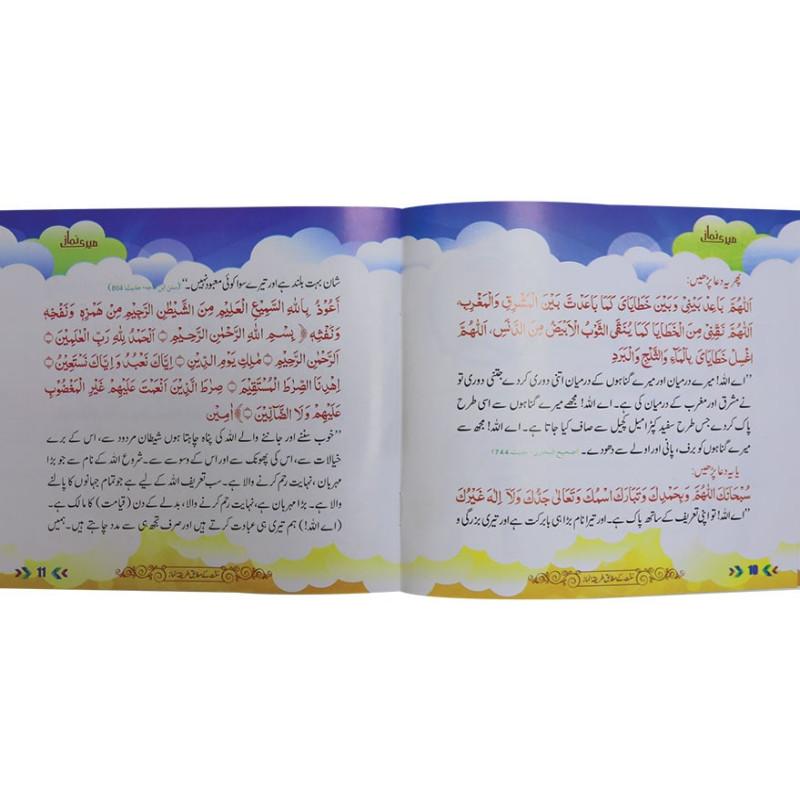 میری نماز
پھر یہ دعا پڑھیں:
اَللّٰهُمَّ بَاعِدْ بَيْنِيْ وَبَيْنَ خَطَايَايَ كَمَا بَاعَدْتَّ بَيْنَ الْمَشْرِقِ وَالْمَغْرِبِ
اَللّٰهُمَّ نَقِّنِيْ مِنَ الْخَطَايَا كَمَا يُنَقَّى الثَّوْبُ الْاَبْيَضُ مِنَ الدَّنَسِ، اَللّٰهُمَّ
اغْسِلْ خَطَايَايَ بِالْمَآءِ وَالثَّلْجِ وَالْبَرَدِ
”اے اللہ! میرے درمیان اور میرے گناہوں کے درمیان اتنی دوری کردے جتنی دوری تو
نے مشرق اور مغرب کے درمیان کی ہے۔ اے اللہ! مجھے میرے گناہوں سے اسی طرح
پاک کردے جس طرح سفید کپڑا میل کچیل سے صاف کیا جاتا ہے۔ اے اللہ! مجھ سے
میرے گناہوں کو برف، پانی اور اولے سے دھو دے۔ (صحیح البخاری، حدیث 744)
یا یہ دعا پڑھیں:
سُبْحَانَكَ اللّٰهُمَّ وَبِحَمْدِكَ وَتَبَارَكَ اسْمُكَ وَتَعَالٰى جَدُّكَ وَلَآ اِلٰهَ غَيْرُكَ
”اے اللہ! تو اپنی تعریف کے ساتھ پاک ہے۔ اور تیرا نام بڑا ہی بابرکت ہے اور تیری بزرگی و
سنت کے مطابق طریقۂ نماز
10
میری نماز
شان بہت بلند ہے اور تیرے سوا کوئی معبود نہیں۔“ (سنن ابن ماجہ، حدیث 804)
اَعُوْذُ بِاللّٰهِ السَّمِيْعِ الْعَلِيْمِ مِنَ الشَّيْطٰنِ الرَّجِيْمِ مِنْ هَمْزِهٖ وَنَفْخِهٖ
وَنَفْثِهٖ ﴿ بِسْمِ اللّٰهِ الرَّحْمٰنِ الرَّحِيْمِ ۝ اَلْحَمْدُ لِلّٰهِ رَبِّ الْعٰلَمِيْنَ ۝
الرَّحْمٰنِ الرَّحِيْمِ ۝ مٰلِكِ يَوْمِ الدِّيْنِ ۝ اِيَّاكَ نَعْبُدُ وَاِيَّاكَ نَسْتَعِيْنُ ۝
اِهْدِنَا الصِّرَاطَ الْمُسْتَقِيْمَ ۝ صِرَاطَ الَّذِيْنَ اَنْعَمْتَ عَلَيْهِمْ غَيْرِ الْمَغْضُوْبِ
عَلَيْهِمْ وَلَا الضَّآلِّيْنَ ۝﴾ اٰمِيْن
”خوب سننے اور جاننے والے اللہ کی پناہ چاہتا ہوں شیطان مردود سے، اس کے برے
خیالات سے، اس کی پھونک سے اور اس کے وسوسے سے۔ شروع اللہ کے نام سے جو بڑا
مہربان، نہایت رحم کرنے والا ہے۔ سب تعریف اللہ کے لیے ہے جو تمام جہانوں کا پالنے
والا ہے۔ بڑا مہربان ہے، نہایت رحم کرنے والا، بدلے کے دن (قیامت) کا مالک ہے۔
(اے اللہ!) ہم تیری ہی عبادت کرتے ہیں اور صرف تجھ ہی سے مدد چاہتے ہیں۔ ہمیں
سنت کے مطابق طریقۂ نماز
11